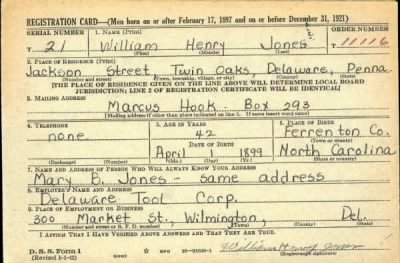 REGISTRATION CARD—(Men born on or after February 17, 1897 and on or before December 31, 1921)
SERIAL NUMBER 1. NAME (Print) ORDER NUMBER
T 21 William Henry Jones 11116
(First) (Middle) (Last)
2. PLACE OF RESIDENCE (Print)
Jackson Street Twin Oaks, Delaware, Penna.
(Number and street) (Town, township, village, or city) (County) (State)
[THE PLACE OF RESIDENCE GIVEN ON THE LINE ABOVE WILL DETERMINE LOCAL BOARD
JURISDICTION; LINE 2 OF REGISTRATION CERTIFICATE WILL BE IDENTICAL]
3. MAILING ADDRESS
Marcus Hook - Box 293
[Mailing address if other than place indicated on line 2. If same insert word same]
4. TELEPHONE 5. AGE IN YEARS 6. PLACE OF BIRTH
none 42 Ferrenton Co.
DATE OF BIRTH (Town or county)
April 1 1899 North Carolina
(Exchange) (Number) (Mo.) (Day) (Yr.) (State or country)
7. NAME AND ADDRESS OF PERSON WHO WILL ALWAYS KNOW YOUR ADDRESS
Mary B. Jones - same address
8. EMPLOYER'S NAME AND ADDRESS
Delaware Tool Corp.
9. PLACE OF EMPLOYMENT OR BUSINESS
300 Market St., Wilmington, Del.
(Number and street or R. F. D. number) (Town) (County) (State)
I AFFIRM THAT I HAVE VERIFIED ABOVE ANSWERS AND THAT THEY ARE TRUE.
D. S. S. Form 1
(Revised 1-1-42) (over) William Henry Jones